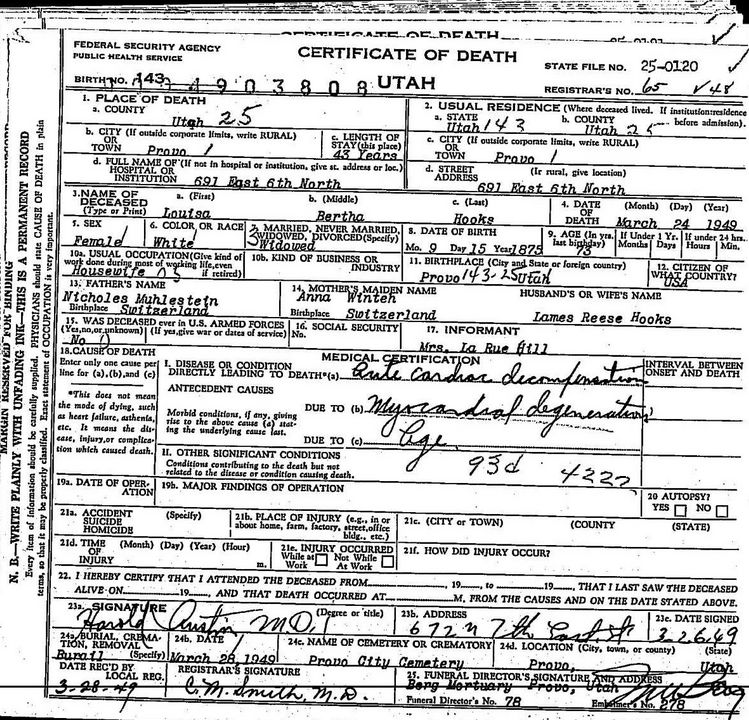 CERTIFICATE OF DEATH
FEDERAL SECURITY AGENCY
PUBLIC HEALTH SERVICE
CERTIFICATE OF DEATH
STATE FILE NO. 25-0120
BIRTH NO. 143 4903808 UTAH
REGISTRAR'S NO. 65 48
1. PLACE OF DEATH
a. COUNTY
Utah 25
2. USUAL RESIDENCE (Where deceased lived. If institution:residence before admission).
a. STATE b. COUNTY
Utah 143 Utah 25
b. CITY (If outside corporate limits, write RURAL)
OR
TOWN Provo 1
c. LENGTH OF STAY (this place)
43 Years
c. CITY (If outside corporate limits, write RURAL)
OR
TOWN Provo 1
d. FULL NAME OF (If not in hospital or institution, give st. address or loc.)
HOSPITAL OR
INSTITUTION 691 East 6th North
d. STREET ADDRESS (If rural, give location)
691 East 6th North
3. NAME OF DECEASED (Type or Print)
a. (First) b. (Middle) c. (Last)
Louisa Bertha Hooks
4. DATE OF DEATH (Month) (Day) (Year)
March 24 1949
5. SEX
Female
6. COLOR OR RACE
White
7. MARRIED, NEVER MARRIED, WIDOWED, DIVORCED (Specify)
Widowed
8. DATE OF BIRTH
Mo. 9 Day 15 Year 1875
9. AGE (In yrs. last birthday) If Under 1 Yr. If Under 24 hrs.
73 Months Days Hours Min.
10a. USUAL OCCUPATION (Give kind of work done during most of working life, even if retired)
Housewife
10b. KIND OF BUSINESS OR INDUSTRY
11. BIRTHPLACE (City and State or foreign country)
Provo 143-25 Utah
12. CITIZEN OF WHAT COUNTRY?
USA
13. FATHER'S NAME
Nicholes Muhlestein
Birthplace Switzerland
14. MOTHER'S MAIDEN NAME
Anna Winteh
Birthplace Switzerland
HUSBAND'S OR WIFE'S NAME
Lames Reese Hooks
15. WAS DECEASED ever in U.S. ARMED FORCES
(Yes,no,or unknown) (If yes,give war or dates of service)
No
16. SOCIAL SECURITY No.
17. INFORMANT
Mrs. La Rue Hill
18. CAUSE OF DEATH
Enter only one cause per line for (a),(b),and (c)
*This does not mean the mode of dying, such as heart failure, asthenia, etc. It means the disease, injury,or complication which caused death.
MEDICAL CERTIFICATION
INTERVAL BETWEEN ONSET AND DEATH
I. DISEASE OR CONDITION
DIRECTLY LEADING TO DEATH*(a) Acute cardiac decompensation
ANTECEDENT CAUSES
Morbid conditions, if any, giving rise to the above cause (a) stating the underlying cause last.
DUE TO (b) Myocardial degeneration
DUE TO (c) Age
II. OTHER SIGNIFICANT CONDITIONS
Conditions contributing to the death but not related to the disease or condition causing death.
93d 4222
19a. DATE OF OPERATION
19b. MAJOR FINDINGS OF OPERATION
20 AUTOPSY?
YES NO
21a. ACCIDENT SUICIDE HOMICIDE (Specify)
21b. PLACE OF INJURY (e.g., in or about home, farm, factory, street,office bldg., etc.)
21c. (CITY OR TOWN) (COUNTY) (STATE)
21d. TIME OF INJURY (Month) (Day) (Year) (Hour) m.
21e. INJURY OCCURRED
While at Work Not While At Work
21f. HOW DID INJURY OCCUR?
22. I HEREBY CERTIFY THAT I ATTENDED THE DECEASED FROM 19 to 19, THAT I LAST SAW THE DECEASED
ALIVE ON 19 AND THAT DEATH OCCURRED AT M, FROM THE CAUSES AND ON THE DATE STATED ABOVE.
23a. SIGNATURE (Degree or title)
Harold Austin M.D.
23b. ADDRESS
672 N 7th East St
23c. DATE SIGNED
3-26-49
24a. BURIAL, CREMATION, REMOVAL (Specify)
Burail
24b. DATE
March 28, 1949
24c. NAME OF CEMETERY OR CREMATORY
Provo City Cemetery
24d. LOCATION (City, town, or county) (State)
Provo, Utah
DATE REC'D BY LOCAL REG.
3-28-49
REGISTRAR'S SIGNATURE
C. M. Smith, M.D.
25. FUNERAL DIRECTOR'S SIGNATURE AND ADDRESS
Berg Mortuary Provo, Utah
Funeral Director's No. 78 Embalmer's No. 278
MARGIN RESERVED FOR BINDING
N. B.—WRITE PLAINLY WITH UNFADING INK—THIS IS A PERMANENT RECORD
Every item of information should be carefully supplied. PHYSICIANS should state CAUSE OF DEATH in plain
terms, so that it may be properly classified. Exact statement of OCCUPATION is very important.